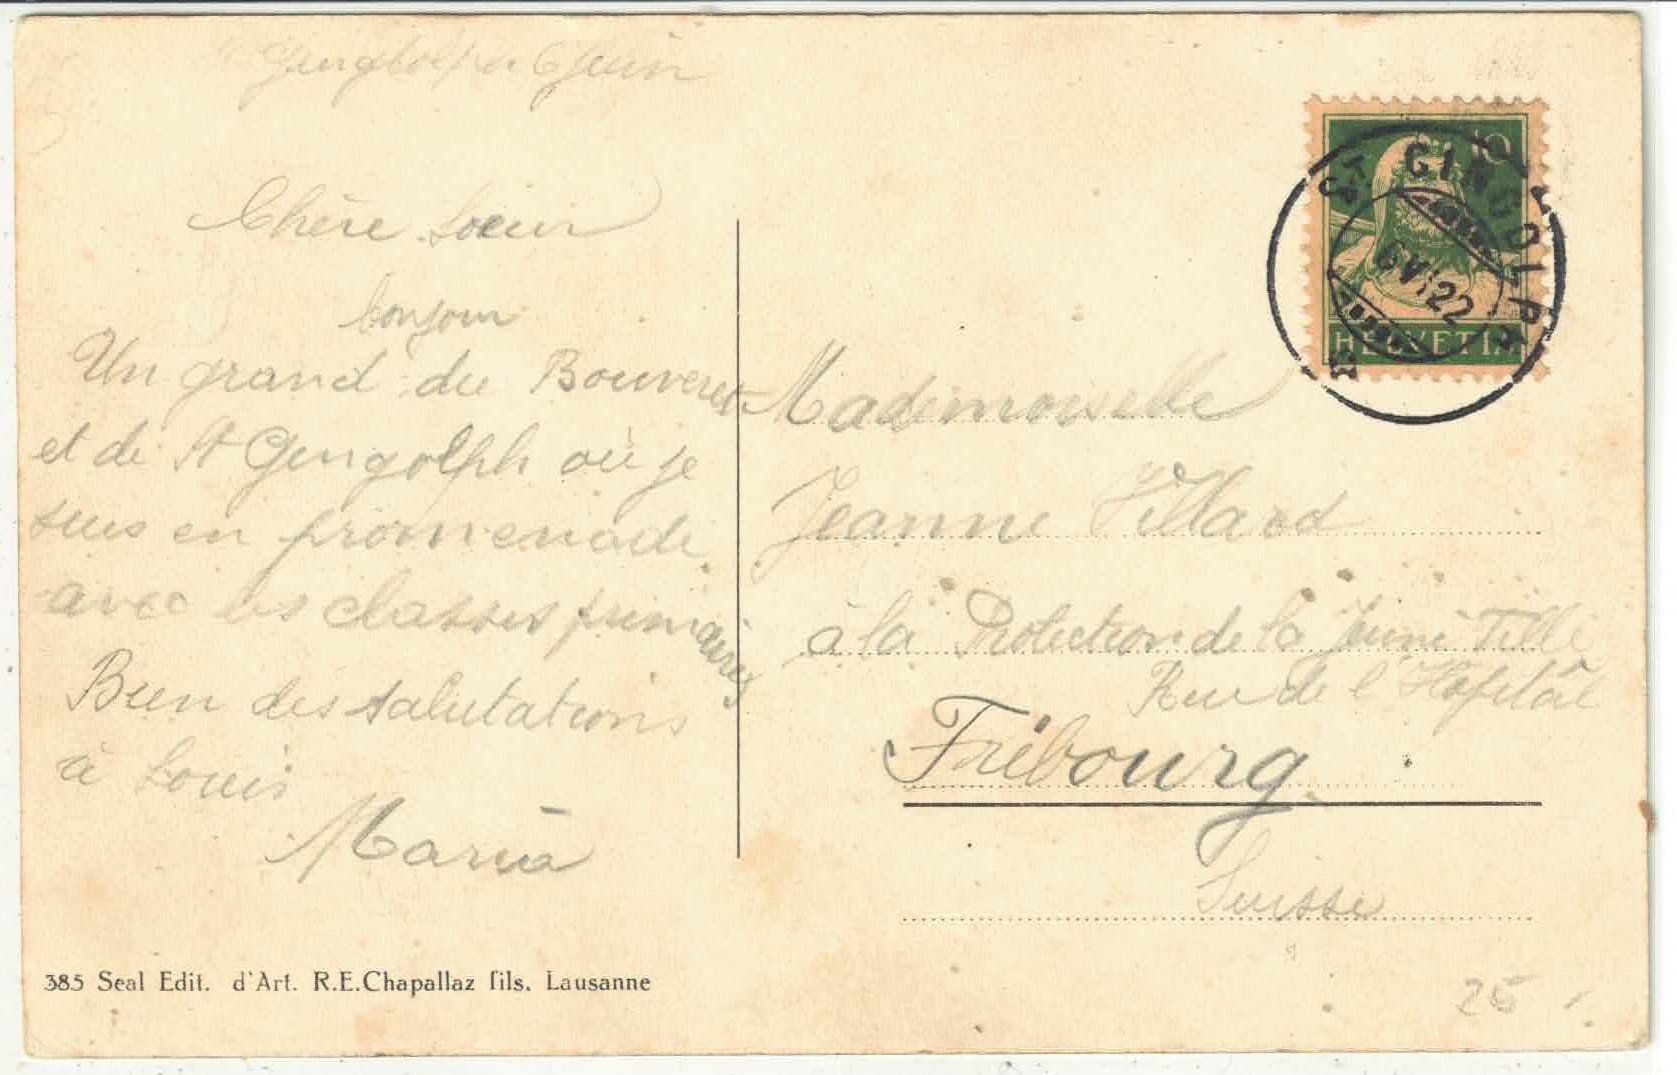 Gengolph 6 Juin
Chère Soeur
bonjour
Un grand du Bouveret
et de St Gengolph où je
suis en promenade
avec les classes primaires
Bien des salutations
à Louis
Maria
385 Seal Edit. d'Art. R.E.Chapallaz fils. Lausanne
10
ST GINGOLPH
6 VI 22
HELVETIA
Mademoiselle
Jeanne Villard
à la Protection de la Jeune Fille
Rue de l'Hôpital
Fribourg
Suisse
25